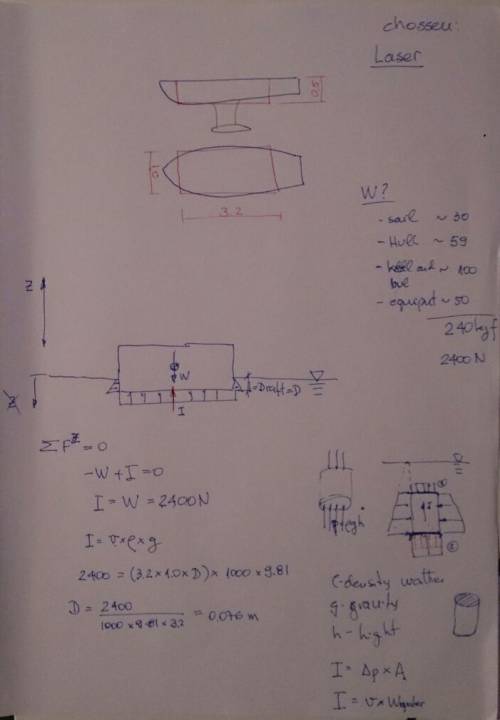 chossen:
Laser
0.5
0.1
3.2
W?
- sail ~ 30
- Hull ~ 59
- keel and ~ 100
- equipat ~ 50
240 kgf
2400 N
Z
W
I
=Draft=D
ΣF^Z=0
-W+I=0
I = W = 2400N
I = V×ρ×g
2400 = (3.2×1.0×D)×1000×9.81
D = 2400 / 1000×9.81×3.2 = 0.076 m
p=ρgh
I
①
②
ρ-density wather
g-gravity
h-hight
I = Δp×A
I = V×Wwater